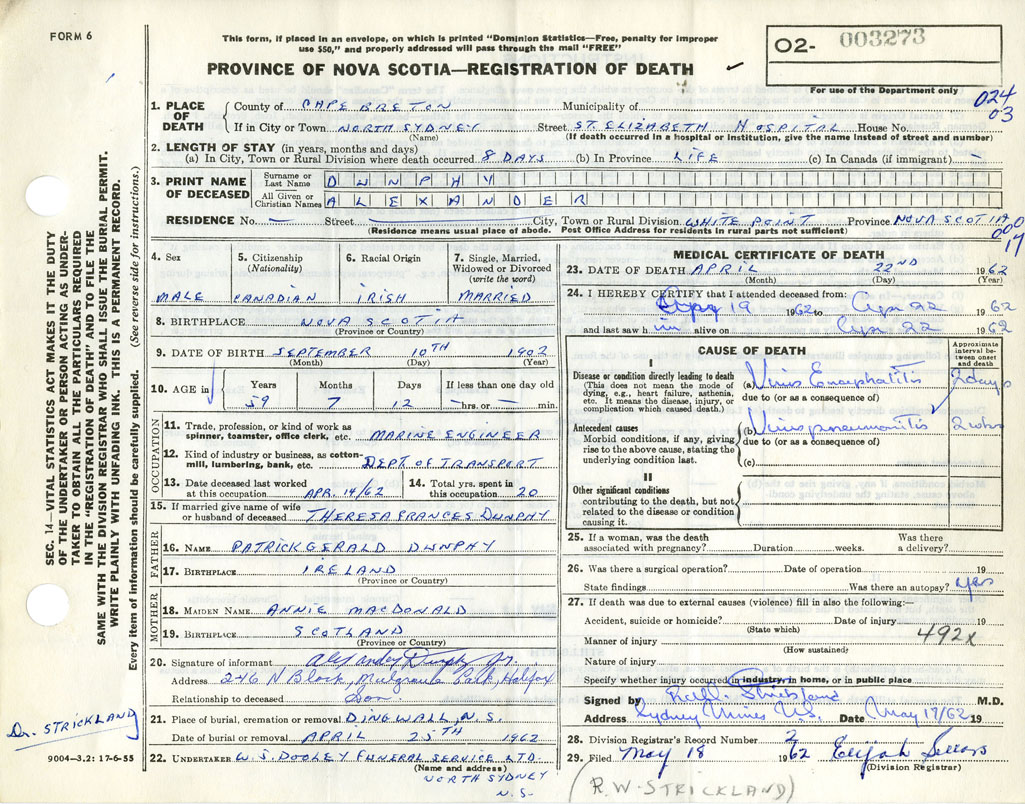 FORM 6
This form, if placed in an envelope, on which is printed "Dominion Statistics—Free, penalty for improper
use $50," and properly addressed will pass through the mail "FREE"
PROVINCE OF NOVA SCOTIA—REGISTRATION OF DEATH ✓
O2- 003273
For use of the Department only
024
03
1. PLACE OF DEATH
County of CAPE BRETON Municipality of
If in City or Town NORTH SYDNEY Street ST. ELIZABETH HOSPITAL House No.
(Name) (If death occurred in a hospital or institution, give the name instead of street and number)
2. LENGTH OF STAY (in years, months and days)
(a) In City, Town or Rural Division where death occurred 8 DAYS (b) In Province LIFE (c) In Canada (if immigrant) —
3. PRINT NAME OF DECEASED
Surname or Last Name DUNPHY
All Given or Christian Names ALEXANDER
RESIDENCE No. — Street City, Town or Rural Division WHITE POINT Province NOVA SCOTIA
(Residence means usual place of abode. Post Office Address for residents in rural parts not sufficient)
000
000
17
4. Sex
MALE
5. Citizenship
(Nationality)
CANADIAN
6. Racial Origin
IRISH
7. Single, Married,
Widowed or Divorced
(write the word)
MARRIED
8. BIRTHPLACE NOVA SCOTIA
(Province or Country)
9. DATE OF BIRTH SEPTEMBER 10TH 1902
(Month) (Day) (Year)
10. AGE in
Years Months Days If less than one day old
59 7 12 — hrs. or — min.
OCCUPATION
11. Trade, profession, or kind of work as
spinner, teamster, office clerk, etc. MARINE ENGINEER
12. Kind of industry or business, as cotton-
mill, lumbering, bank, etc. DEPT. OF TRANSPORT
13. Date deceased last worked
at this occupation APR. 14/62
14. Total yrs. spent in
this occupation 20
15. If married give name of wife
or husband of deceased THERESA FRANCES DUNPHY
FATHER
16. NAME PATRICK GERALD DUNPHY
17. BIRTHPLACE IRELAND
(Province or Country)
MOTHER
18. MAIDEN NAME ANNIE MACDONALD
19. BIRTHPLACE SCOTLAND
(Province or Country)
20. Signature of informant Alexander Dunphy Jr.
Address 246 N Block, Mulgrave Park, Halifax
Relationship to deceased Son
21. Place of burial, cremation or removal DINGWALL, N.S.
Date of burial or removal APRIL 25TH 1962
22. UNDERTAKER W. S. DOOLEY FUNERAL SERVICE LTD.
(Name and address)
NORTH SYDNEY
N.S.
MEDICAL CERTIFICATE OF DEATH
23. DATE OF DEATH APRIL 22ND 1962
(Month) (Day) (Year)
24. I HEREBY CERTIFY that I attended deceased from:
19 1962 to Apr 22 1962
and last saw him alive on Apr 22 1962
CAUSE OF DEATH
Approximate
interval be-
tween onset
and death
I
Disease or condition directly leading to death
(This does not mean the mode of
dying, e.g., heart failure, asthenia,
etc. It means the disease, injury, or
complication which caused death.)
(a) Virus Encephalitis 2 days
due to (or as a consequence of)
Antecedent causes
Morbid conditions, if any, giving
rise to the above cause, stating the
underlying condition last.
(b) Virus pneumonitis 2 wks
due to (or as a consequence of)
(c)
II
Other significant conditions
contributing to the death, but not
related to the disease or condition
causing it.
25. If a woman, was the death
associated with pregnancy? Duration weeks. Was there
a delivery?
26. Was there a surgical operation? Date of operation 19
State findings Was there an autopsy? yes
27. If death was due to external causes (violence) fill in also the following:
Accident, suicide or homicide? Date of injury 19
(State which)
492x
Manner of injury
(How sustained)
Nature of injury
Specify whether injury occurred in industry, in home, or in public place
Signed by Strickland M.D.
Address Sydney Mines N.S. Date May 17/62 19
28. Division Registrar's Record Number 2
29. Filed May 18 1962 Elijah Sellars
(Division Registrar)
(R.W. STRICKLAND)
SEC. 14—VITAL STATISTICS ACT MAKES IT THE DUTY
OF THE UNDERTAKER OR PERSON ACTING AS UNDER-
TAKER TO OBTAIN ALL THE PARTICULARS REQUIRED
IN THE "REGISTRATION OF DEATH" AND TO FILE THE
SAME WITH THE DIVISION REGISTRAR WHO SHALL ISSUE THE BURIAL PERMIT.
WRITE PLAINLY WITH UNFADING INK. THIS IS A PERMANENT RECORD.
Every item of information should be carefully supplied. (See reverse side for instructions.)
Dr. STRICKLAND
9004—3.2: 17-6-55